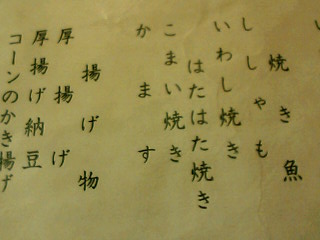 焼き魚
ししゃも
いわし焼き
はたはた焼き
こまい焼き
かます
揚げ物
厚揚げ
厚揚げ納豆
コーンのかき揚げ